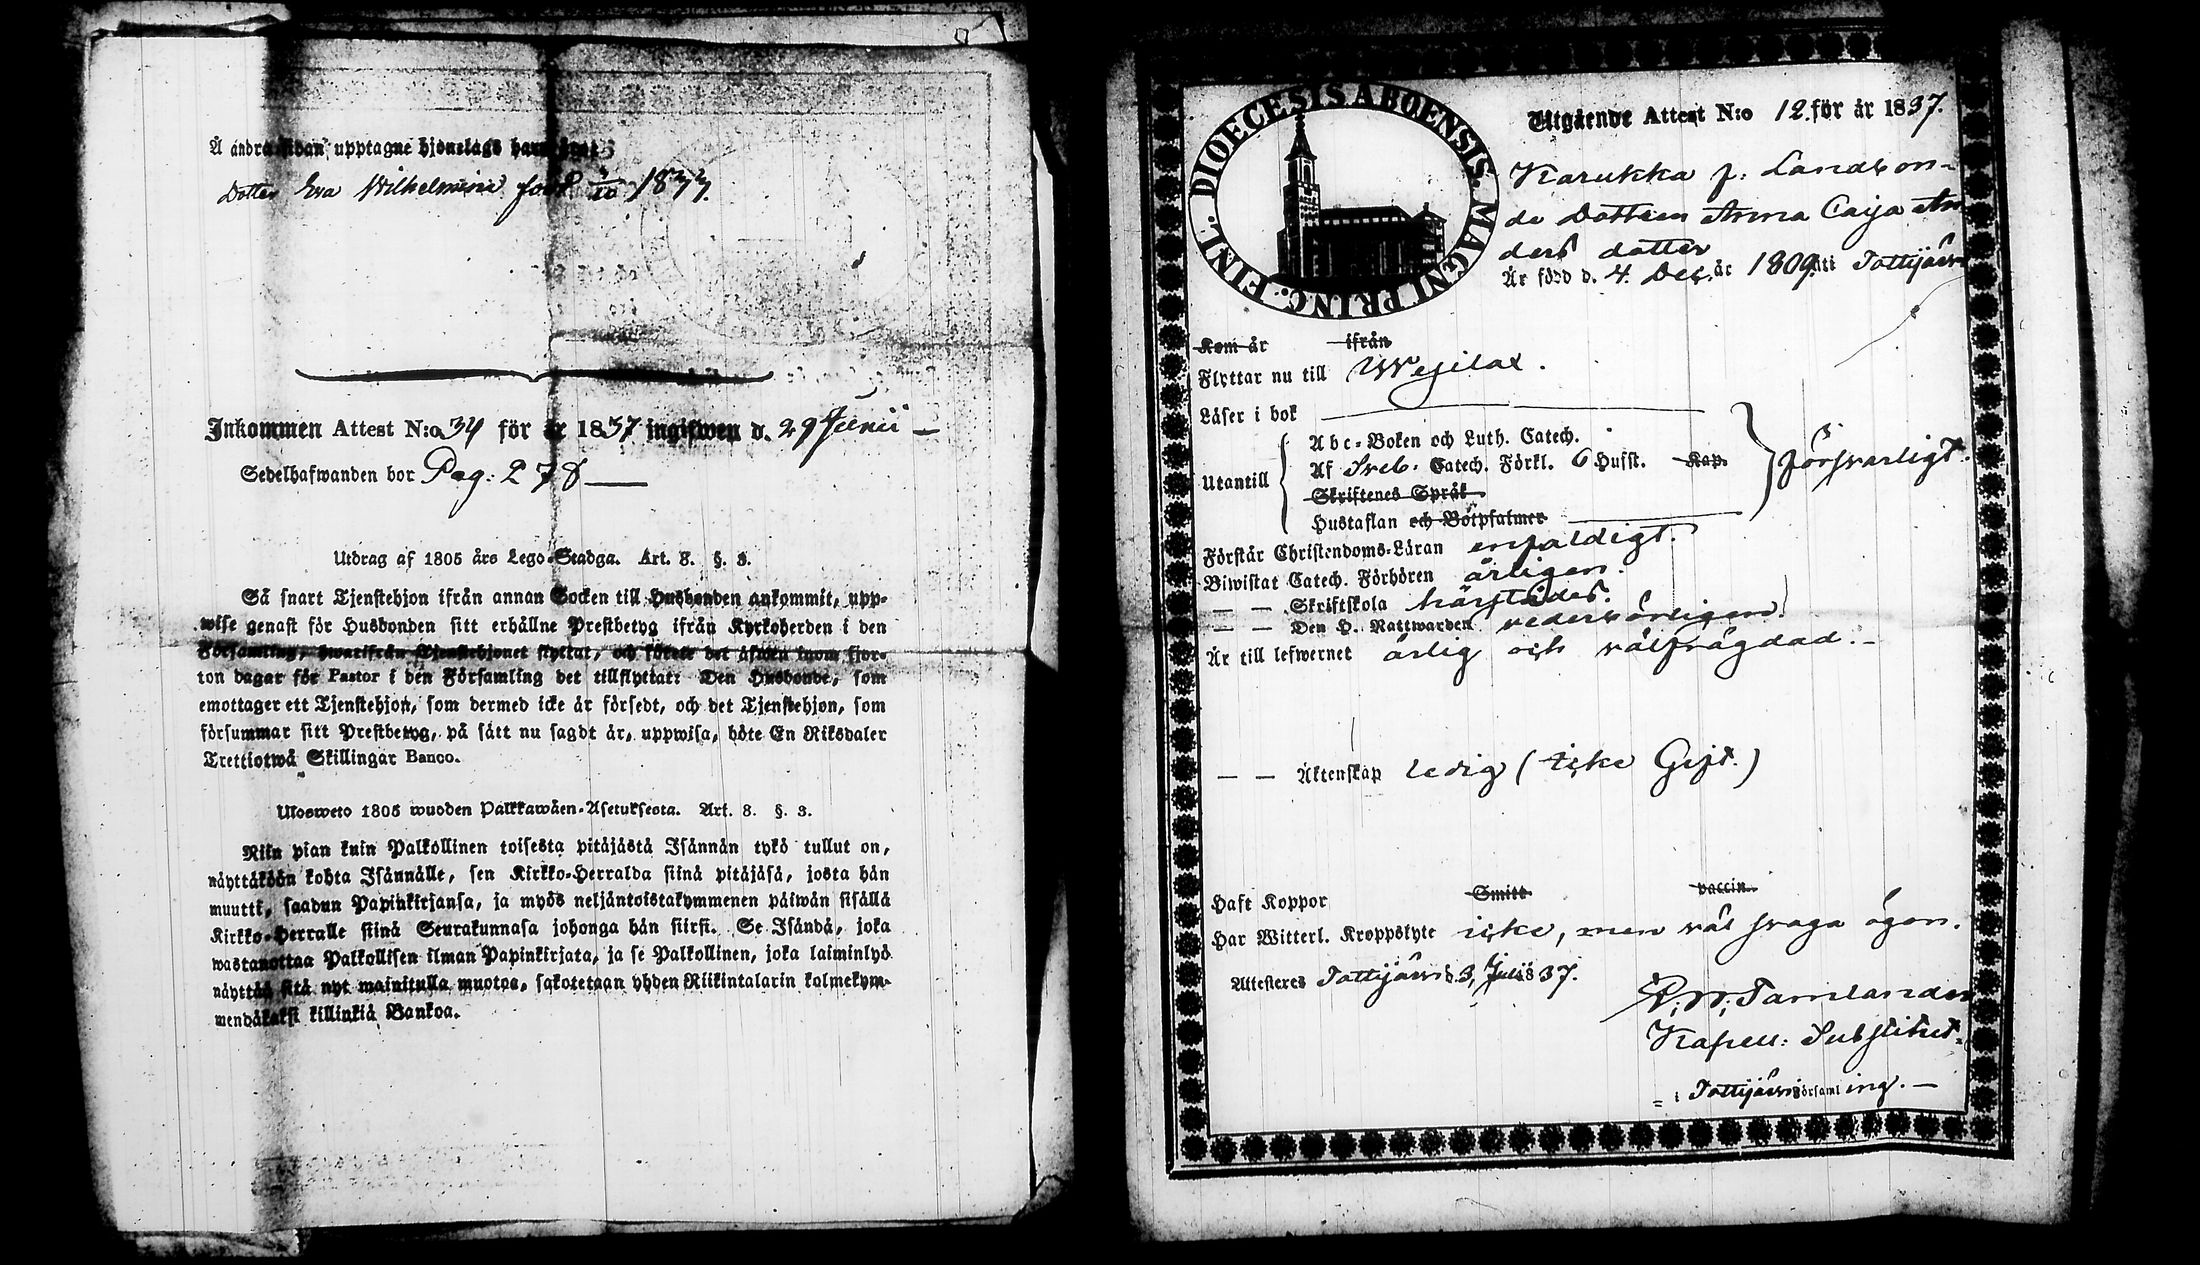 Å andra sidan upptagne hjonelags barn äro:
Dotter Eva Wilhelmina född 4/10 1833.
Inkommen Attest N:o 34 för år 1837 ingifwen d. 29 Junii —
Sedelhafwanden bor Pag: 278 —
Utdrag af 1805 års Lego-Stadga. Art. 8. §. 3.
Så snart Tjenstehjon ifrån annan Socken till Husbonden ankommit, upp-
wise genast för Husbonden sitt erhållne Prestbetyg ifrån Kyrkoherden i den
Församling, hwarifrån Tjenstehjonet flyttat, och förete det äfwen inom fjor-
ton dagar för Pastor i den Församling det tillflyttat: Den Husbonde, som
emottager ett Tjenstehjon, som dermed icke är försedt, och det Tjenstehjon, som
försummar sitt Prestbetyg, på sätt nu sagdt är, uppwisa, böte En Riksdaler
Trettiotwå Skillingar Banco.
Ulosweto 1805 wuoden Palkkawäen-Asetuksesta. Art. 8. §. 3.
Niin pian kuin Palkollinen toisesta pitäjästä Isännän tykö tullut on,
näyttäköön kohta Isännälle, sen Kirkko-Herralda siinä pitäjäsä, josta hän
muutti, saadun Papinkirjansa, ja myös neljäntoistakymmenen päiwän sisällä
Kirkko-Herralle siinä Seurakunnasa johonga hän siirsi. Se Isändä, joka
wastanottaa Palkollisen ilman Papinkirjata, ja se Palkollinen, joka laiminlyö
näyttää sitä nyt mainitulla muotoa, sakotetaan yhden Riikintalarin kolmekym-
mendäkaksi killinkiä Bankoa.
DIOECESIS ABOENSIS. MAGNI PRINC. FINL.
Utgående Attest N:o 12. för år 1837.
Karukka f. Landbon-
de Dottren Anna Caija An
ders dotter
Är född d. 4. Dec. år 1809. uti Tottijärvi
Kom år ifrån
Flyttar nu till Wesilax.
Läser i bok
Utantill
Abc-Boken och Luth. Catech.
Af Sveb. Catech. Förkl. 6 Hufst. Kap.
Skriftenes Språk
Hustaflan och Botpsalmer
försvarligt.
Förstår Christendoms-Läran enfaldigt.
Biwistat Catech. Förhören årligen.
— — Skriftskola härstädes.
— — Den H. Nattwarden vedervörligen.
Är till lefwernet ärlig och välfrägdad. —
— — Äktenskap ledig (icke Gift.)
Haft Koppor Smitt vaccin.
Har Witterl. Kroppslyte icke, men väl svaga ögon.
Attesteras Tottijärvi d. 3 Julii 1837.
Tamlander
Kapell: Substitut
= i Tottijärvi Församling. —